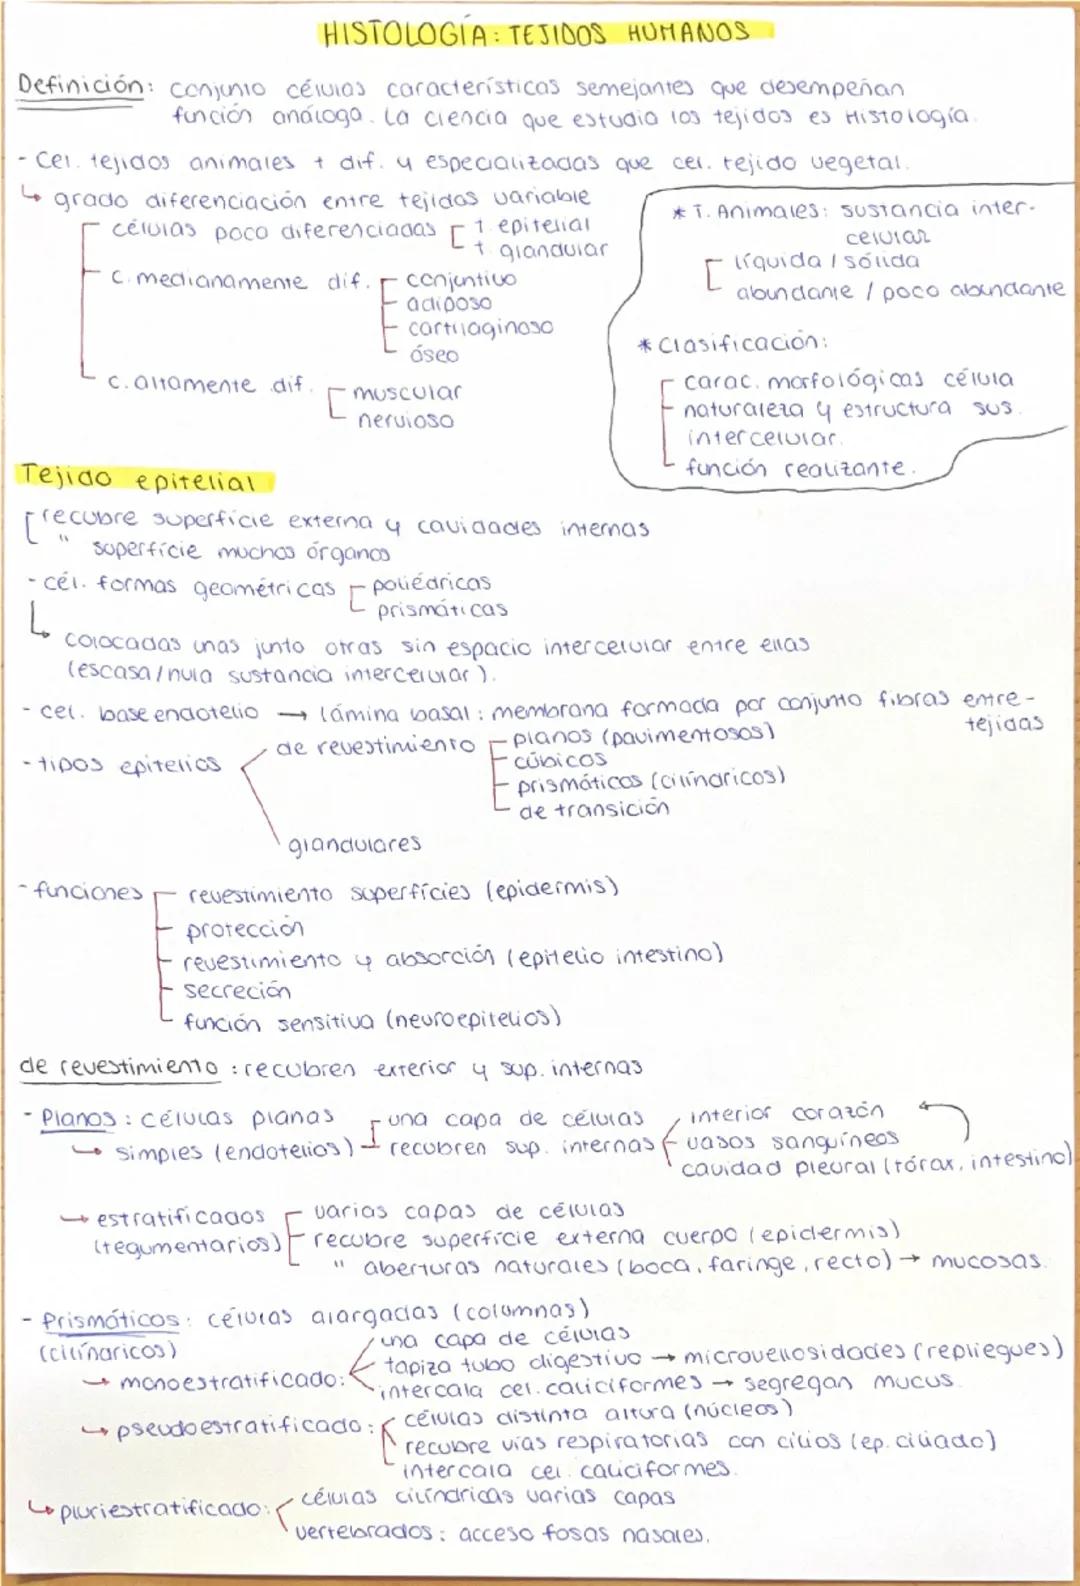 HISTOLOGÍA: TEJIDOS HUMANOS
Definición: conjunto células características semejantes que desempeñan
función análoga. La ciencia que estudia los tejidos es Histología.
- Cel. tejidos animales + dif. y especializadas que cel. tejido vegetal.
↳ grado diferenciación entre tejidos variable
células poco diferenciadas
t. epitelial
t. glandular
c. medianamente dif.
conjuntivo
adiposo
cartilaginoso
óseo
c. altamente dif.
muscular
nervioso
* T. Animales: sustancia inter-
celular
líquida / sólida
abundante / poco abundante
* Clasificación:
carac. morfológicas célula
naturaleza y estructura sus.
intercelular.
función realizante.
Tejido epitelial
recubre superficie externa y cavidades internas
" superfície muchos órganos
- cél. formas geométricas
poliédricas
prismáticas
↳ colocadas unas junto otras sin espacio intercelular entre ellas
(escasa/nula sustancia intercelular).
- cel. base endotelio → lámina basal: membrana formada por conjunto fibras entre-
tejidas
- tipos epitelios
de revestimiento
planos (pavimentosos)
cúbicos
prismáticos (cilíndricos)
de transición
glandulares
- funciones
revestimiento superfícies (epidermis)
protección
revestimiento y absorción (epitelio intestino)
secreción
función sensitiva (neuroepitelios)
de revestimiento: recubren exterior y sup. internas
- Planos: células planas
↳ simples (endotelios)
una capa de células
recubren sup. internas
interior corazón
vasos sanguíneos
cavidad pleural (tórax, intestino)
→ estratificados
(tegumentarios)
varias capas de células
recubre superfície externa cuerpo (epidermis)
" aberturas naturales (boca, faringe, recto) → mucosas.
- Prismáticos: células alargadas (columnas)
(cilíndricos)
→ monoestratificado:
una capa de células
tapiza tubo digestivo → microvellosidades (repliegues)
intercala cel. caliciformes → segregan mucus.
↳ pseudoestratificado:
células distinta altura (núcleos)
recubre vías respiratorias con cilios (ep. ciliado)
intercala cel. caliciformes.
↳ pluriestratificado:
células cilíndricas varias capas
vertebrados: acceso fosas nasales.